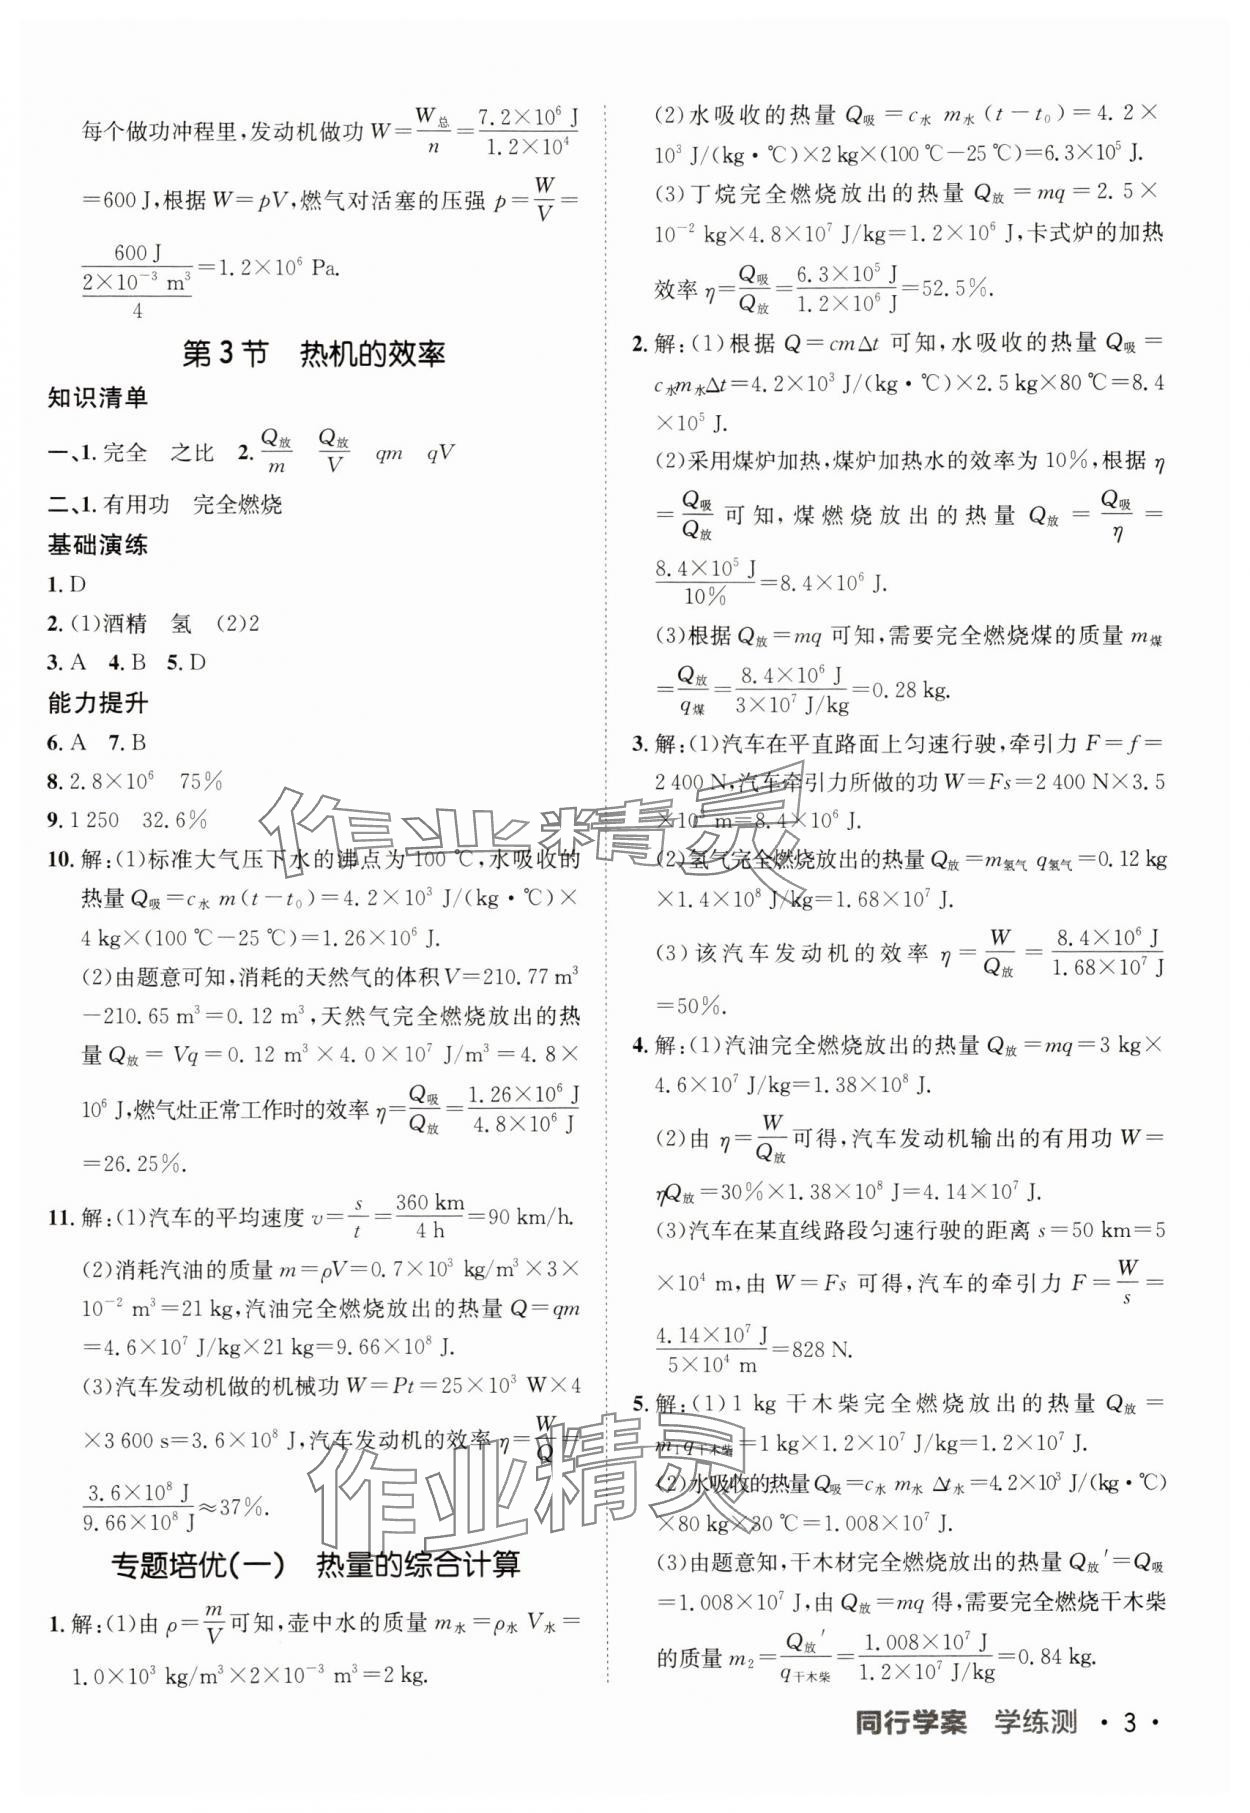 每个做功冲程里,发动机做功 W=W总/n=7.2×10⁶ J/1.2×10⁴
=600 J,根据 W=pV,燃气对活塞的压强 p=W/V=
600 J/(2×10⁻³ m³/4)=1.2×10⁶ Pa.
第3节 热机的效率
知识清单
一、1.完全 之比 2.Q放/m Q放/V qm qV
二、1.有用功 完全燃烧
基础演练
1.D
2.(1)酒精 氢 (2)2
3.A 4.B 5.D
能力提升
6.A 7.B
8.2.8×10⁶ 75%
9.1 250 32.6%
10.解:(1)标准大气压下水的沸点为100 ℃,水吸收的
热量 Q吸=c水 m(t-t₀)=4.2×10³ J/(kg·℃)×
4 kg×(100 ℃-25 ℃)=1.26×10⁶ J.
(2)由题意可知,消耗的天然气的体积V=210.77 m³
-210.65 m³=0.12 m³,天然气完全燃烧放出的热
量 Q放= Vq=0.12 m³×4.0×10⁷ J/m³=4.8×
10⁶ J,燃气灶正常工作时的效率 η=Q吸/Q放=1.26×10⁶ J/4.8×10⁶ J
=26.25%.
11.解:(1)汽车的平均速度 v=s/t=360 km/4 h=90 km/h.
(2)消耗汽油的质量 m=ρV=0.7×10³ kg/m³×3×
10⁻² m³=21 kg,汽油完全燃烧放出的热量 Q=qm
=4.6×10⁷ J/kg×21 kg=9.66×10⁸ J.
(3)汽车发动机做的机械功 W=Pt=25×10³ W×4
×3 600 s=3.6×10⁸ J,汽车发动机的效率 η=W/Q=
3.6×10⁸ J/9.66×10⁸ J≈37%.
专题培优(一) 热量的综合计算
1.解:(1)由 ρ=m/V可知,壶中水的质量 m水=ρ水 V水=
1.0×10³ kg/m³×2×10⁻³ m³=2 kg.
(2)水吸收的热量 Q吸=c水 m水(t-t₀)=4.2×
10³ J/(kg·℃)×2 kg×(100 ℃-25 ℃)=6.3×10⁵ J.
(3)丁烷完全燃烧放出的热量 Q放=mq=2.5×
10⁻² kg×4.8×10⁷ J/kg=1.2×10⁶ J,卡式炉的加热
效率 η=Q吸/Q放=6.3×10⁵ J/1.2×10⁶ J=52.5%.
2.解:(1)根据 Q=cmΔt 可知,水吸收的热量 Q吸=
c水m水Δt=4.2×10³ J/(kg·℃)×2.5 kg×80 ℃=8.4
×10⁵ J.
(2)采用煤炉加热,煤炉加热水的效率为10%,根据 η
=Q吸/Q放可知,煤燃烧放出的热量 Q放=Q吸/η=
8.4×10⁵ J/10%=8.4×10⁶ J.
(3)根据 Q放=mq 可知,需要完全燃烧煤的质量 m煤
=Q放/q煤=8.4×10⁶ J/3×10⁷ J/kg=0.28 kg.
3.解:(1)汽车在平直路面上匀速行驶,牵引力 F=f=
2 400 N,汽车牵引力所做的功 W=Fs=2 400 N×3.5
×10³ m=8.4×10⁶ J.
(2)氢气完全燃烧放出的热量 Q放=m氢气 q氢气=0.12 kg
×1.4×10⁸ J/kg=1.68×10⁷ J.
(3)该汽车发动机的效率 η=W/Q放=8.4×10⁶ J/1.68×10⁷ J
=50%.
4.解:(1)汽油完全燃烧放出的热量 Q放=mq=3 kg×
4.6×10⁷ J/kg=1.38×10⁸ J.
(2)由 η=W/Q放可得,汽车发动机输出的有用功 W=
ηQ放=30%×1.38×10⁸ J=4.14×10⁷ J.
(3)汽车在某直线路段匀速行驶的距离 s=50 km=5
×10⁴ m,由 W=Fs 可得,汽车的牵引力 F=W/s=
4.14×10⁷ J/5×10⁴ m=828 N.
5.解:(1)1 kg 干木柴完全燃烧放出的热量 Q放=
m₁q干木柴=1 kg×1.2×10⁷ J/kg=1.2×10⁷ J.
(2)水吸收的热量 Q吸=c水 m水 Δt水=4.2×10³ J/(kg·℃)
×80 kg×30 ℃=1.008×10⁷ J.
(3)由题意知,干木材完全燃烧放出的热量 Q放′=Q吸
=1.008×10⁷ J,由 Q放=mq 得,需要完全燃烧干木柴
的质量 m₂=Q放′/q干木柴=1.008×10⁷ J/1.2×10⁷ J/kg=0.84 kg.
同行学案 学练测 ·3·
作业精灵
作业精灵